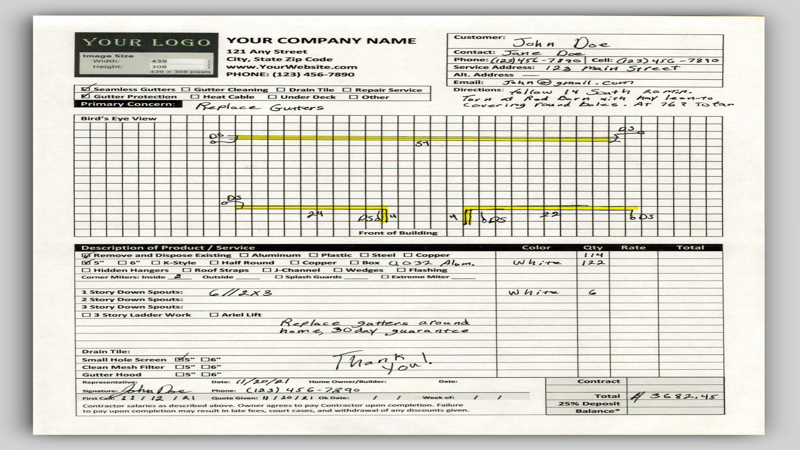 YOUR LOGO
Image Size
Width: 439
Height: 308
439 x 308 pixels
YOUR COMPANY NAME
121 Any Street
City, State Zip Code
www.YourWebsite.com
PHONE: (123) 456-7890
Customer: John Doe
Contact: Jane Doe
Phone: (123)456-7890 Cell: (123)456-7890
Service Address: 123 Main Street
Alt. Address
Email: John@gmail.com
Directions: follow 14 South 20 min.
Turn at Red Barn with hay lean-to
covering round bales. At 763 Totar
Seamless Gutters Gutter Cleaning Drain Tile Repair Service
Gutter Protection Heat Cable Under Deck Other
Primary Concern: Replace Gutters
Bird's Eye View
DS DS
54
DS
24 DS 4 4 DS 22 DS
Front of Building
Description of Product / Service Color Qty Rate Total
Remove and Dispose Existing Aluminum Plastic Steel Copper 114
5" 6" K-Style Half Round Copper Box .032 Alum. White 122
Hidden Hangers Roof Straps J-Channel Wedges Flashing
Corner Miters: Inside 2 Outside Splash Guards Extreme Miter
1 Story Down Spouts: 6//2x3 White 6
2 Story Down Spouts:
3 Story Down Spouts:
3 Story Ladder Work Ariel Lift
Replace gutters around
home, 30 day guarantee
Drain Tile:
Small Hole Screen 5" 6"
Clean Mesh Filter 5" 6"
Gutter Hood 5" 6"
Thank you!
Representative: Date: 11/20/21 Home Owner/Builder: Date:
Signature: John Doe Phone: (123) 456-7890
First Call: 11/12/21 Quote Given: 11/20/21 Ok Date: / / Week of: / /
Contractor salaries as described above. Owner agrees to pay Contractor upon completion. Failure
to pay upon completion may result in late fees, court cases, and withdrawal of any discounts given.
Contract
Total $ 3682.45
25% Deposit
Balance*